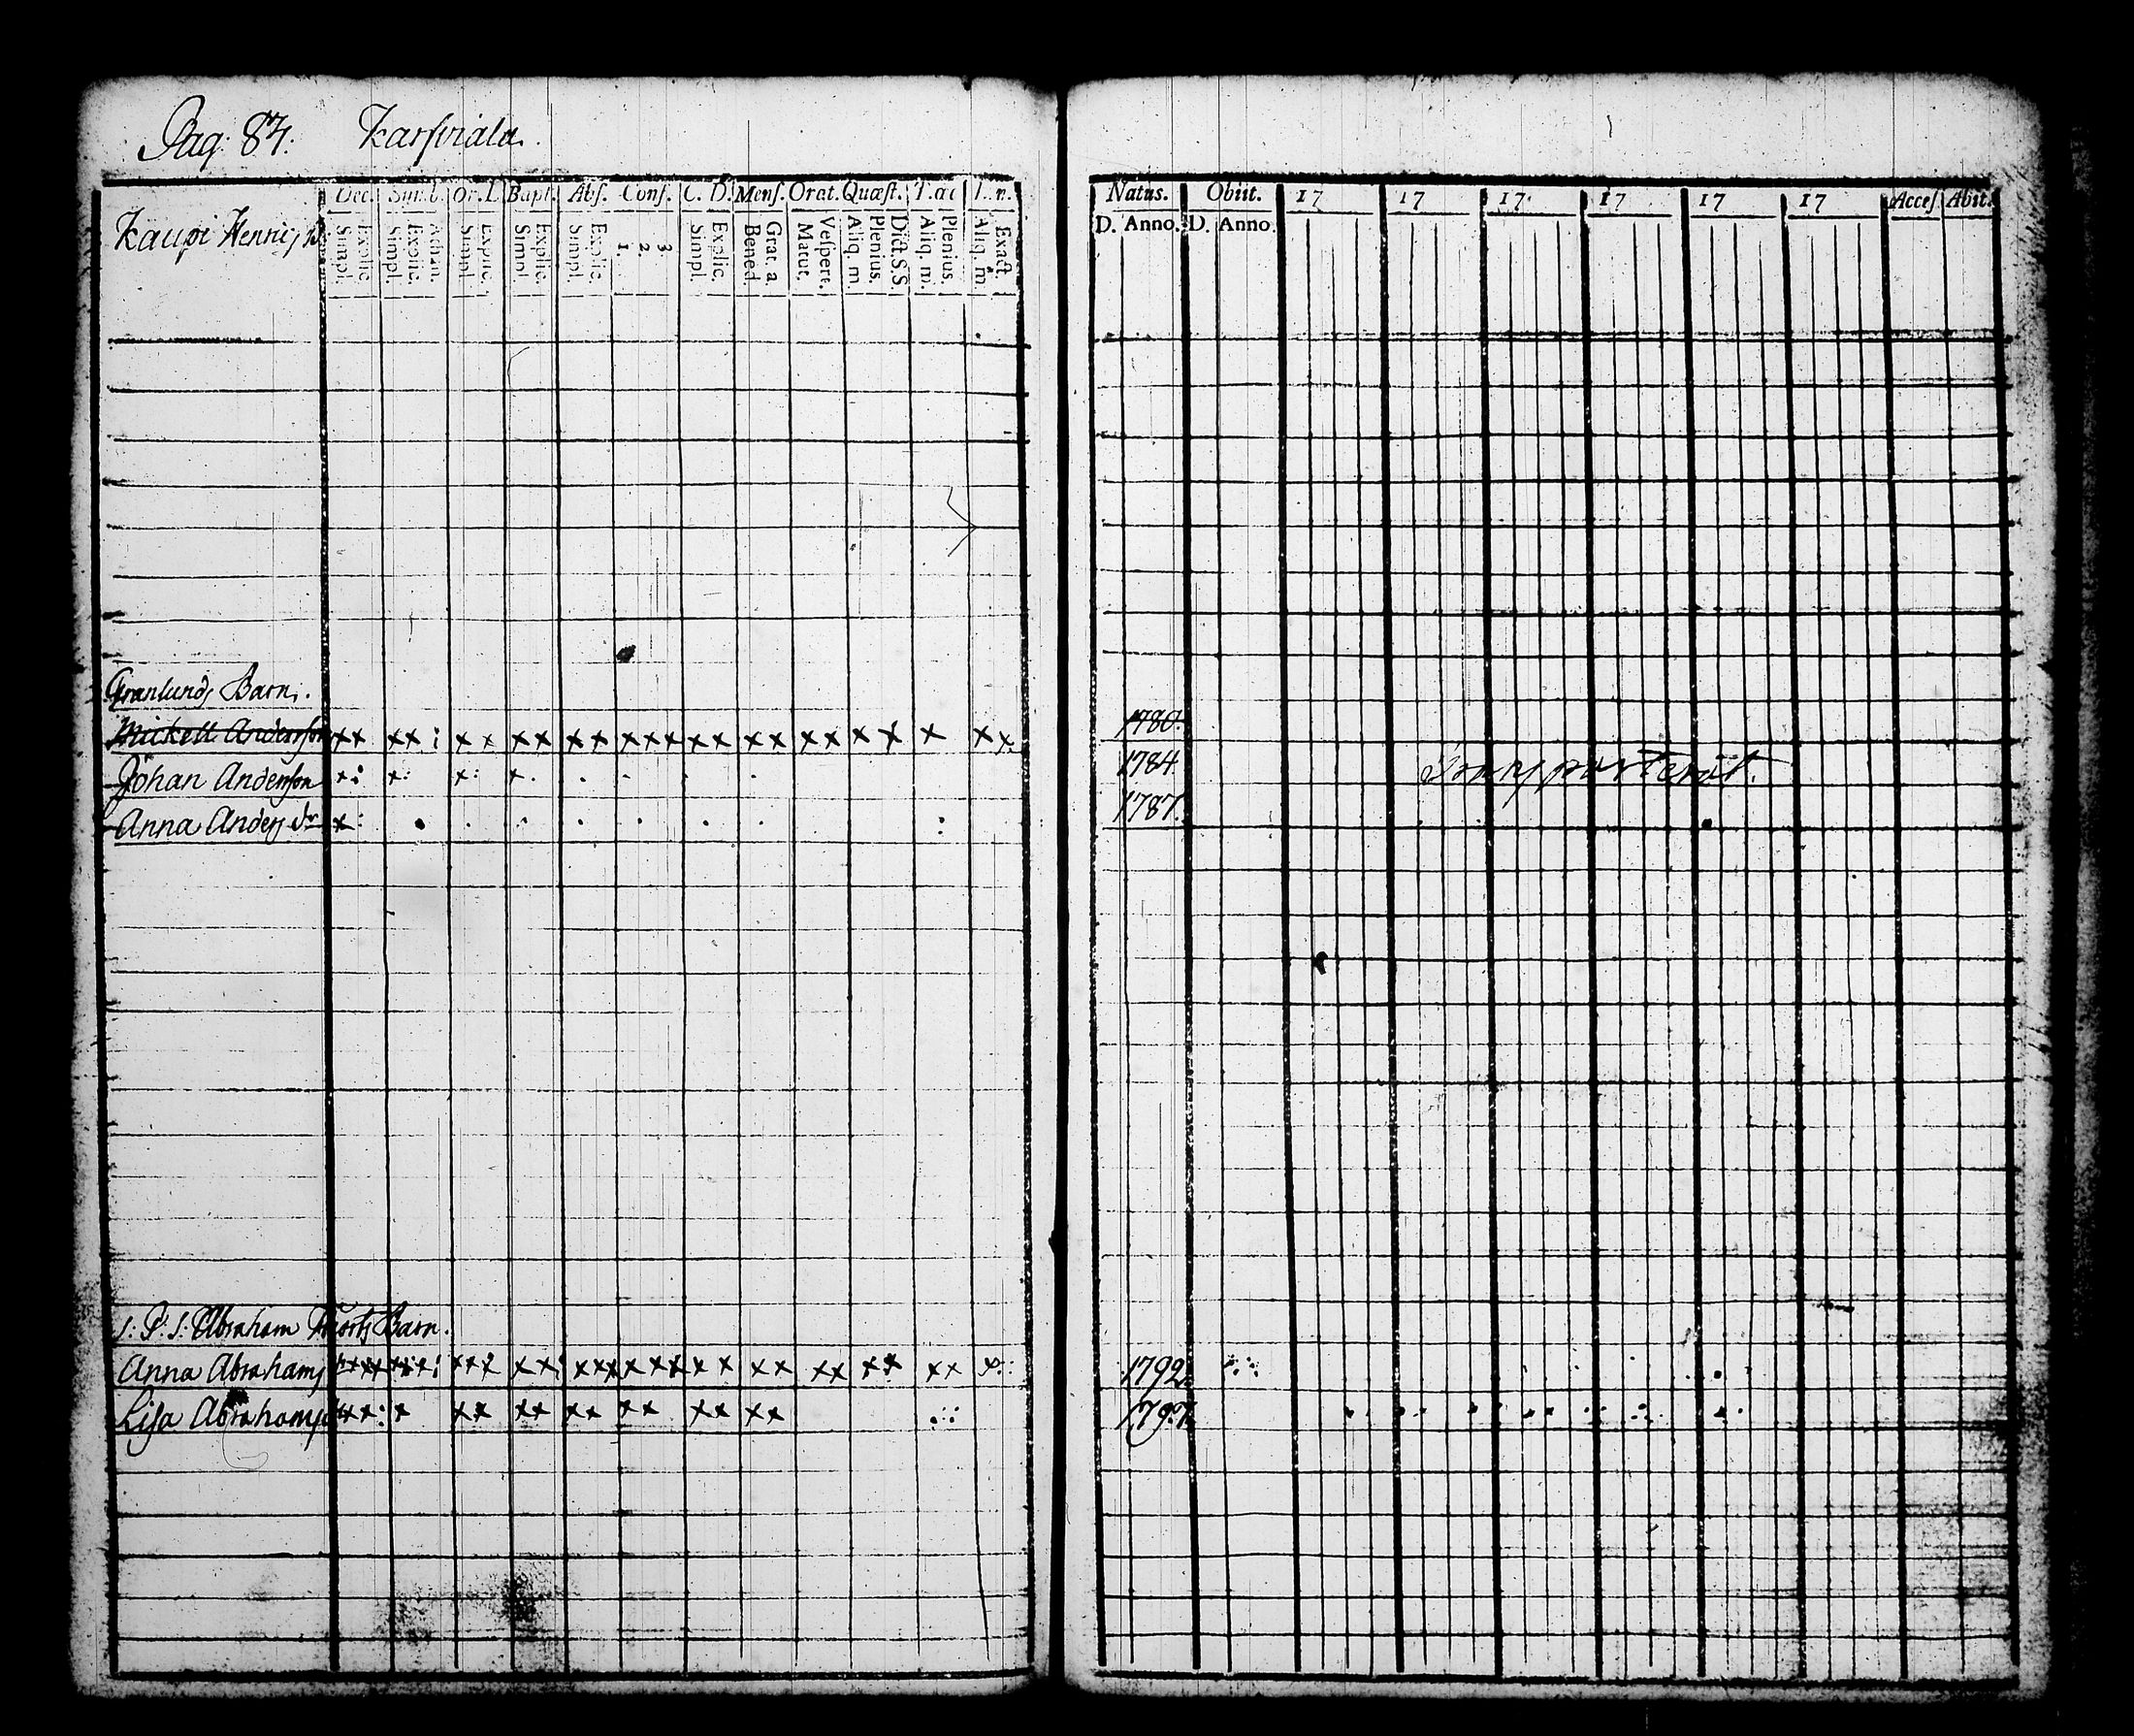 Pag. 84. Karsviala.
Dec. Simb. Or. D. Bapt. Abs. Conf. C. D. Mens. Orat. Quæst. T. ae
Kaupi Henric
Simpl. Explic. Simpl. Explic. Athan. Simpl. Explic. Simpl. Explic. Simpl. Explic. 1. 2. 3. Simpl. Explic. Bened. Grat. a. Matut. Vespert. Aliq. m. Plenius. Dict. S.S. Aliq. m. Plenius. Aliq. m. Exact.
Natus. Obiit. 17 17 17 17 17 17 Access. Abit.
D. Anno. D. Anno.
Granlunds Barn.
Mickell Andersson xx xx : x x xx xx xxx xx xx xx x x x x x 1780.
Johan Andersson 1784. Transporterat.
Anna Anders dr 1787.
Abraham Barn.
Anna Abrahams 1792
Lisa Abrahams 1797